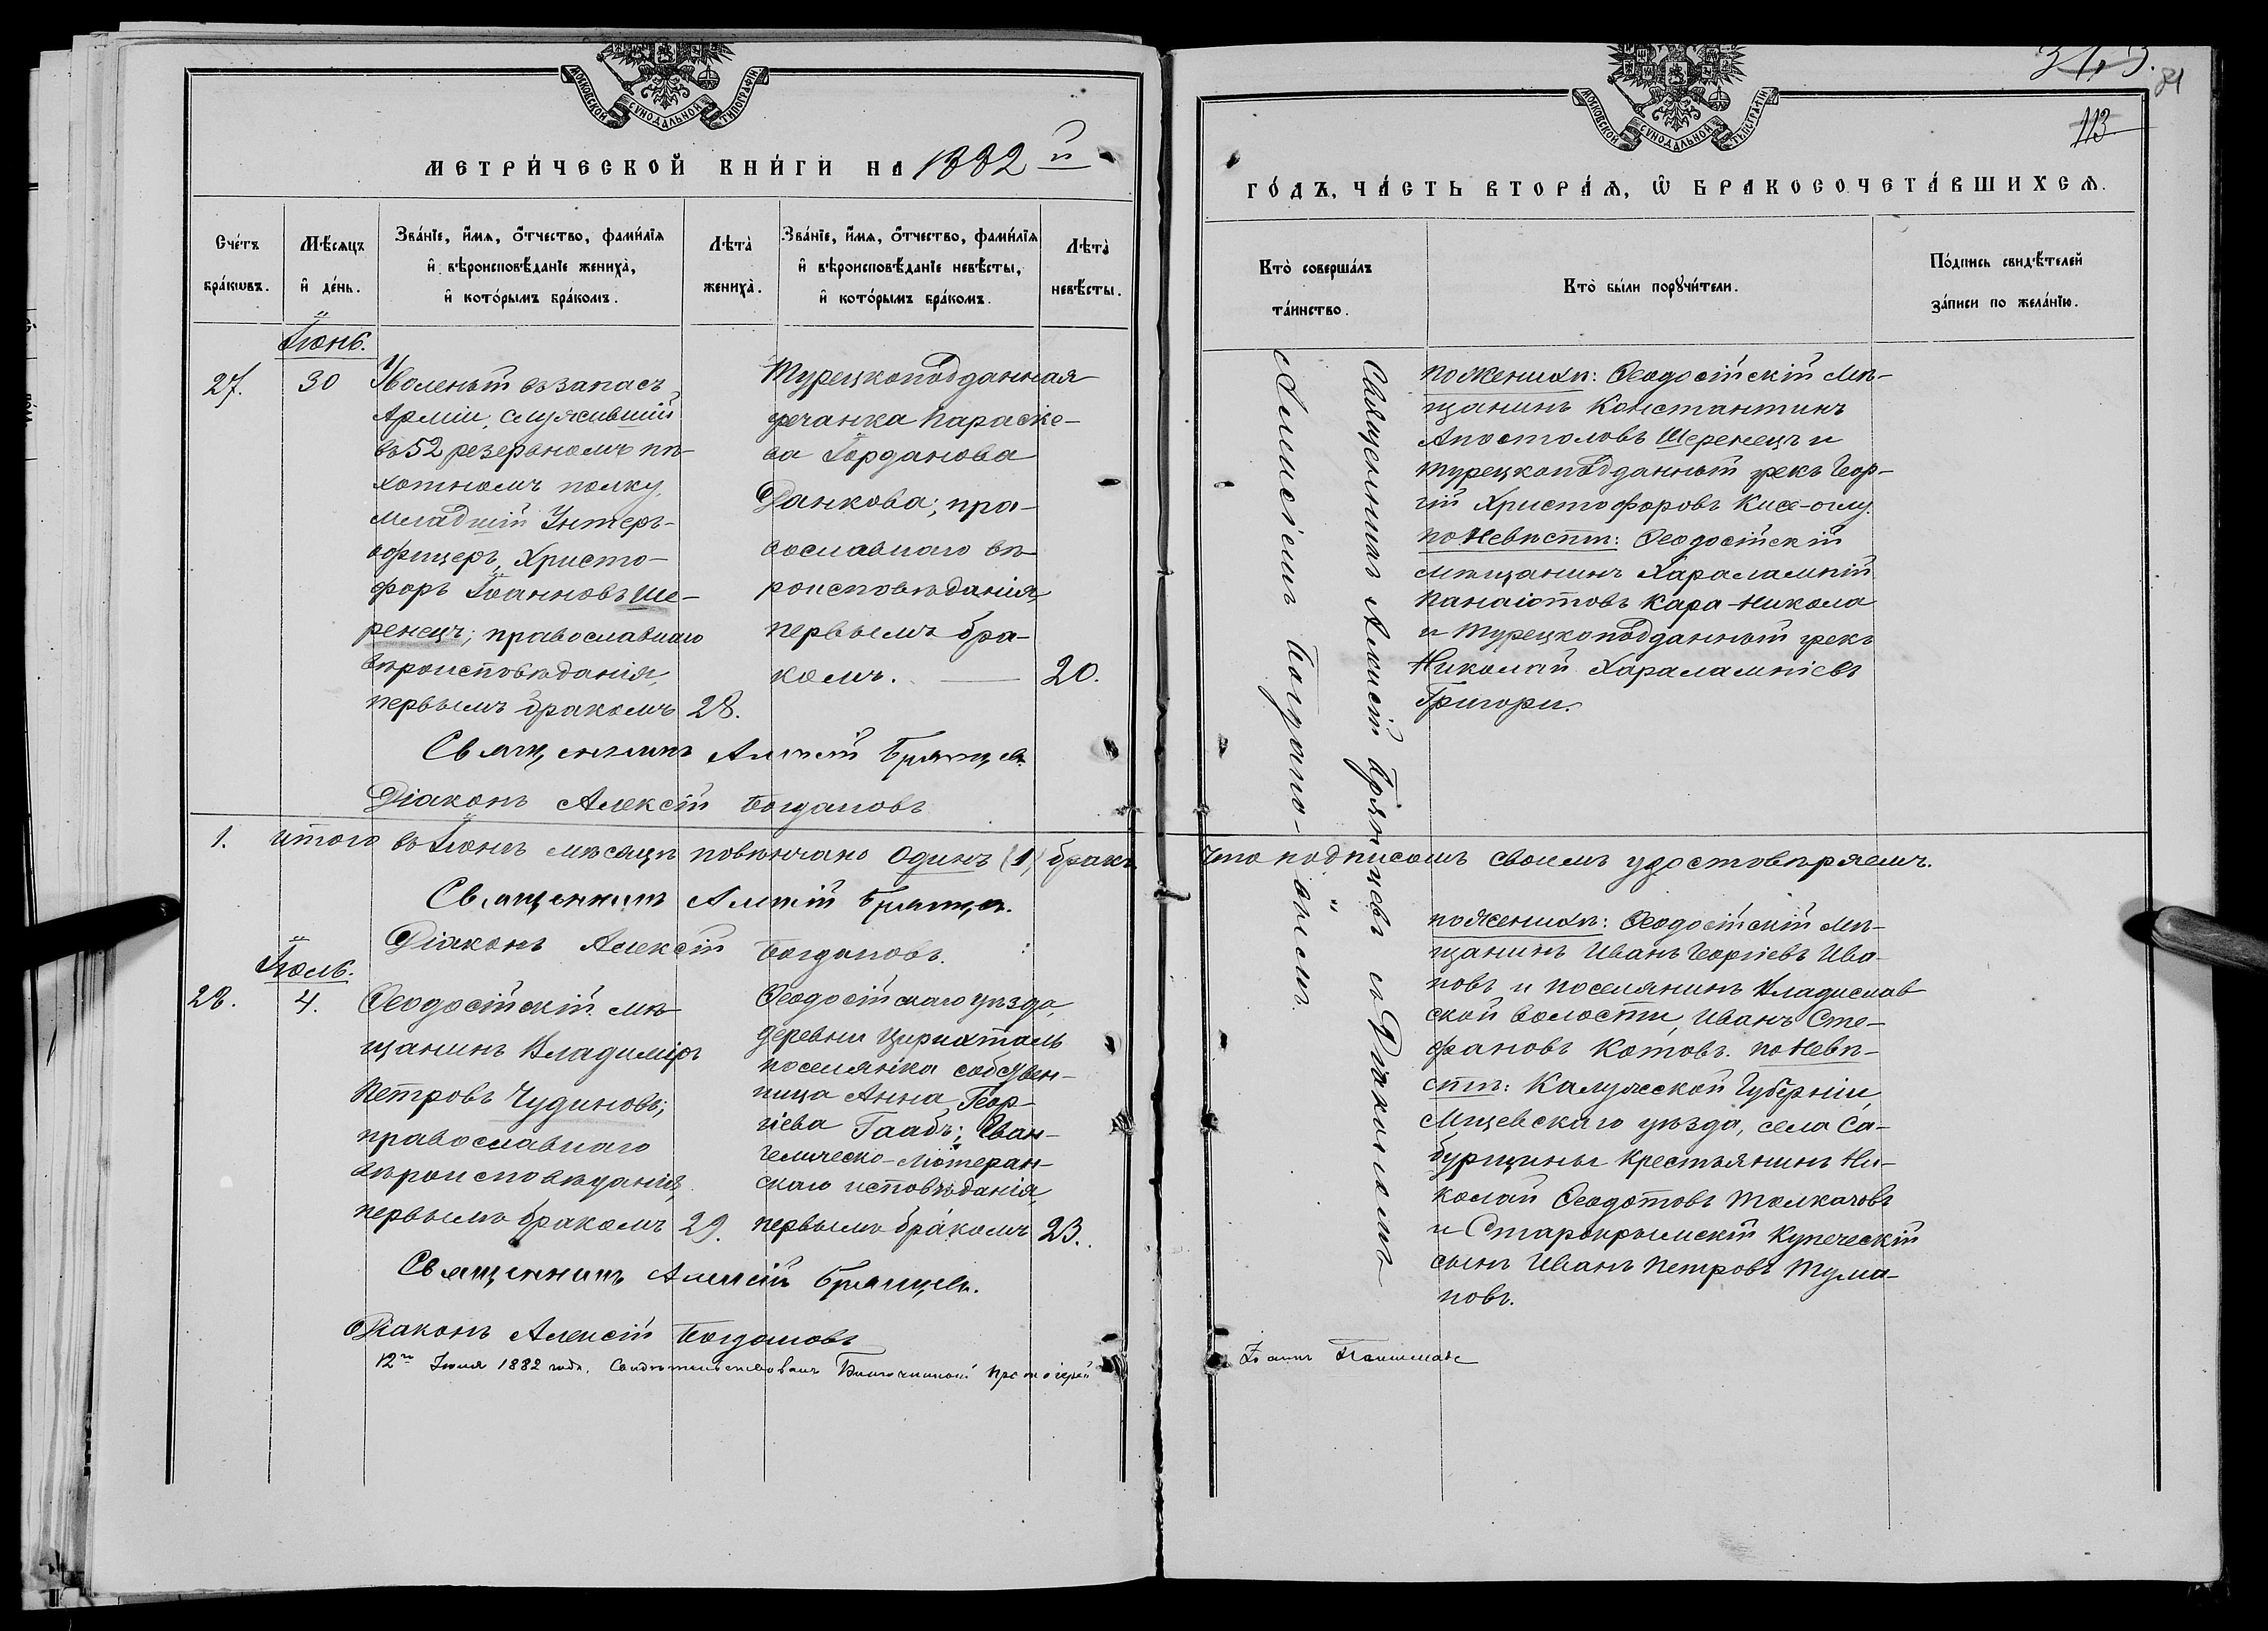 МОСКОВСКОЙ СѴНОДАЛЬНОЙ ТИПОГРАФІИ
МЕТРИ́ЧЕСКОЙ КНИ́ГИ НА 1882 й
Сче́тъ бра́кѡвъ.
Мѣ́сяцъ и҆ де́нь.
Зва́нїе, и҆́мѧ, ѻ҆́тчество, фами́лїѧ
и҆ вѣроисповѣ́данїе жениха̀,
и҆ кото́рымъ бра́комъ.
Лѣта̀ жениха̀.
Зва́нїе, и҆́мѧ, ѻ҆́тчество, фами́лїѧ
и҆ вѣроисповѣ́данїе невѣ́сты,
и҆ кото́рымъ бра́комъ.
Лѣта̀ невѣ́сты.
Іюнь.
27.
30
Уволеный въ запасъ
Арміи, служившій
въ 52 резервномъ пѣ-
хотномъ полку,
младшій Унтеръ-
офицеръ, Христо-
форъ Іоанновъ Ше-
ренецъ; православнаго
вѣроисповѣданія,
первымъ бракомъ
28.
Турецкоподданная
гречанка Параске-
ва Іорданова
Данкова; пра-
вославнаго вѣ-
роисповѣданія,
первымъ бра-
комъ.
20.
Священникъ Алексій Брянцев.
Діаконъ Алексій Богдановъ
1. итого въ Іюнѣ мѣсяцѣ повѣнчано Одинъ (1) бракъ
Священникъ Алексій Брянцев.
Діаконъ Алексій Богдановъ.
Іюль.
28.
4.
Ѳеодосійскій мѣ-
щанинъ Владиміръ
Петровъ Чудиновъ;
православнаго
вѣроисповѣданія,
первымъ бракомъ
29.
Ѳеодосійскаго уѣзда,
деревни Цирихталь
поселянка собствен-
ница Анна Геор-
гіева Гаабъ; Еван-
гелическо-Лютеран-
скаго исповѣданія,
первымъ бракомъ
23.
Священникъ Алексій Брянцев.
Діаконъ Алексій Богдановъ
12го Іюля 1882 года. Свидѣтельствовалъ Благочинный Протоіерей
МОСКОВСКОЙ СѴНОДАЛЬНОЙ ТИПОГРАФІИ
81
113
ГО́ДЪ, ЧА́СТЬ ВТОРА́Ѧ, Ѡ҆ БРАКОСОЧЕТА́ВШИХСѦ.
Кто̀ соверша́лъ
та́инство.
Кто̀ бы́ли порꙋчи́тели.
По́дпись свидѣ́телей
за́писи по жела́нїю.
Священникъ Алексій Брянцевъ съ Діакономъ
Алексіемъ Богдано-
вымъ.
по Женихѣ: Ѳеодосійскій Мѣ-
щанинъ Константинъ
Апостоловъ Шеренецъ и
турецкоподданный грекъ Геор-
гій Христофоровъ Кисе-оглу.
по Невѣстѣ: Ѳеодосійскій
мѣщанинъ Харалампій
Панаіотовъ Кара-Никола
и Турецкоподданный грекъ
Николай Харалампіевъ
Григори.
Что подписомъ своимъ удостовѣряемъ.
по Женихѣ: Ѳеодосійскій Мѣ-
щанинъ Иванъ Георгіевъ Ива-
новъ и поселянинъ Владислав
ской волости, Иванъ Сте-
фановъ Котовъ. по Невѣ-
стѣ: Калужской Губерніи,
Мщевскаго уѣзда, села Са-
бурщины крестьянинъ Ни-
колай Ѳеодотовъ Толкачовъ
и Старокрымскій купеческій
сынъ Иванъ Петровъ Тума-
новъ.
Іоаннъ